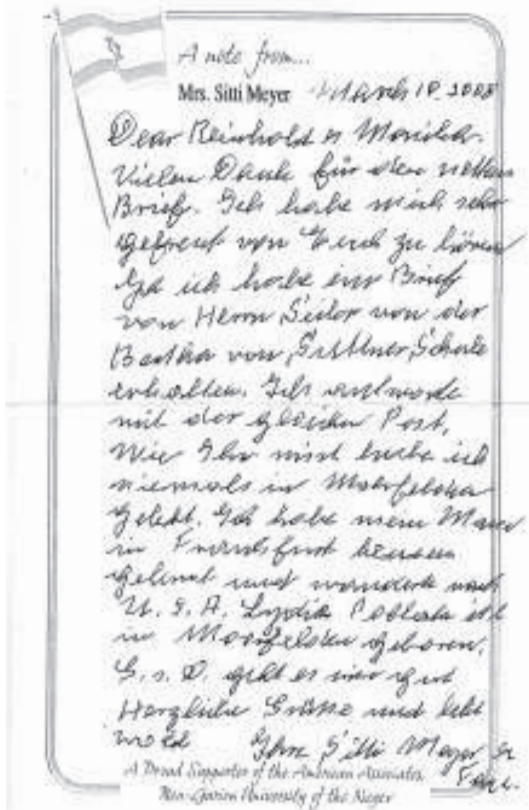 A note from...
Mrs. Sitti Meyer March 10. 2008
Dear Reinhold & Monika.
Vielen Dank für den netten
Brief. Ich habe mich sehr
gefreut von Euch zu hören
Ja ich habe ein Brief
von Herrn von der
Bertha von Suttner Schule
erhalten. Ich antworte
mit der gleichen Post,
Wie Ihr wisst habe ich
niemals in Moerfelden
gelebt. Ich habe mein Mann
in Frankfurt kennen
gelernt und wanderte nach
U. S. A. Lydia ist
in Moerfelden geboren.
G. s. D. geht es mir gut
Herzliche Grüsse und lebt
wohl Ihre Sitti Meyer
A Proud Supporter of the American Associates,
Ben-Gurion University of the Negev